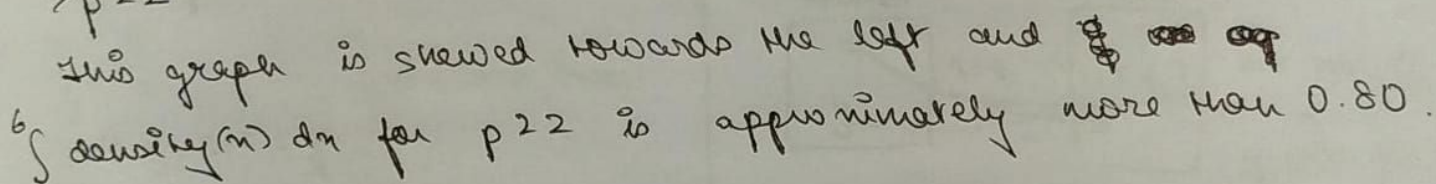 p22
This graph is skewed towards the left and
6∫ density(x) dx for p22 is approximately more than 0.80.